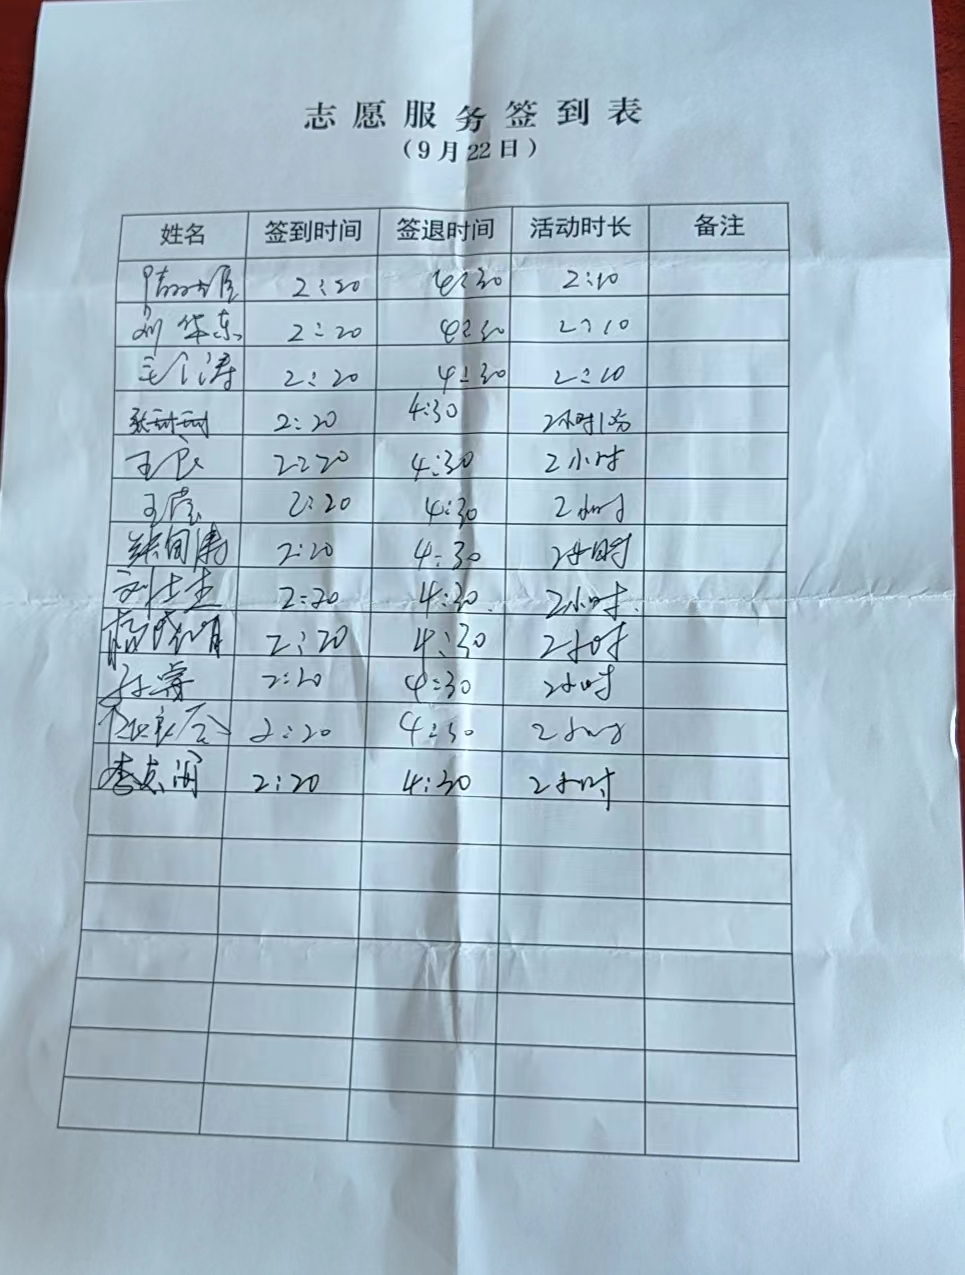 志愿服务签到表
（9月22日）
姓名 签到时间 签退时间 活动时长 备注
2:20 4:30 2:10
刘华东 2:20 4:30 2:10
2:20 4:30 2:10
张珂珂 2:20 4:30 2小时10分
2:20 4:30 2小时
2:20 4:30 2小时
2:20 4:30 2小时
2:20 4:30 2小时.
2:20 4:30 2小时
孙睿 2:20 4:30 2小时
2:20 4:30 2小时
2:20 4:30 2小时